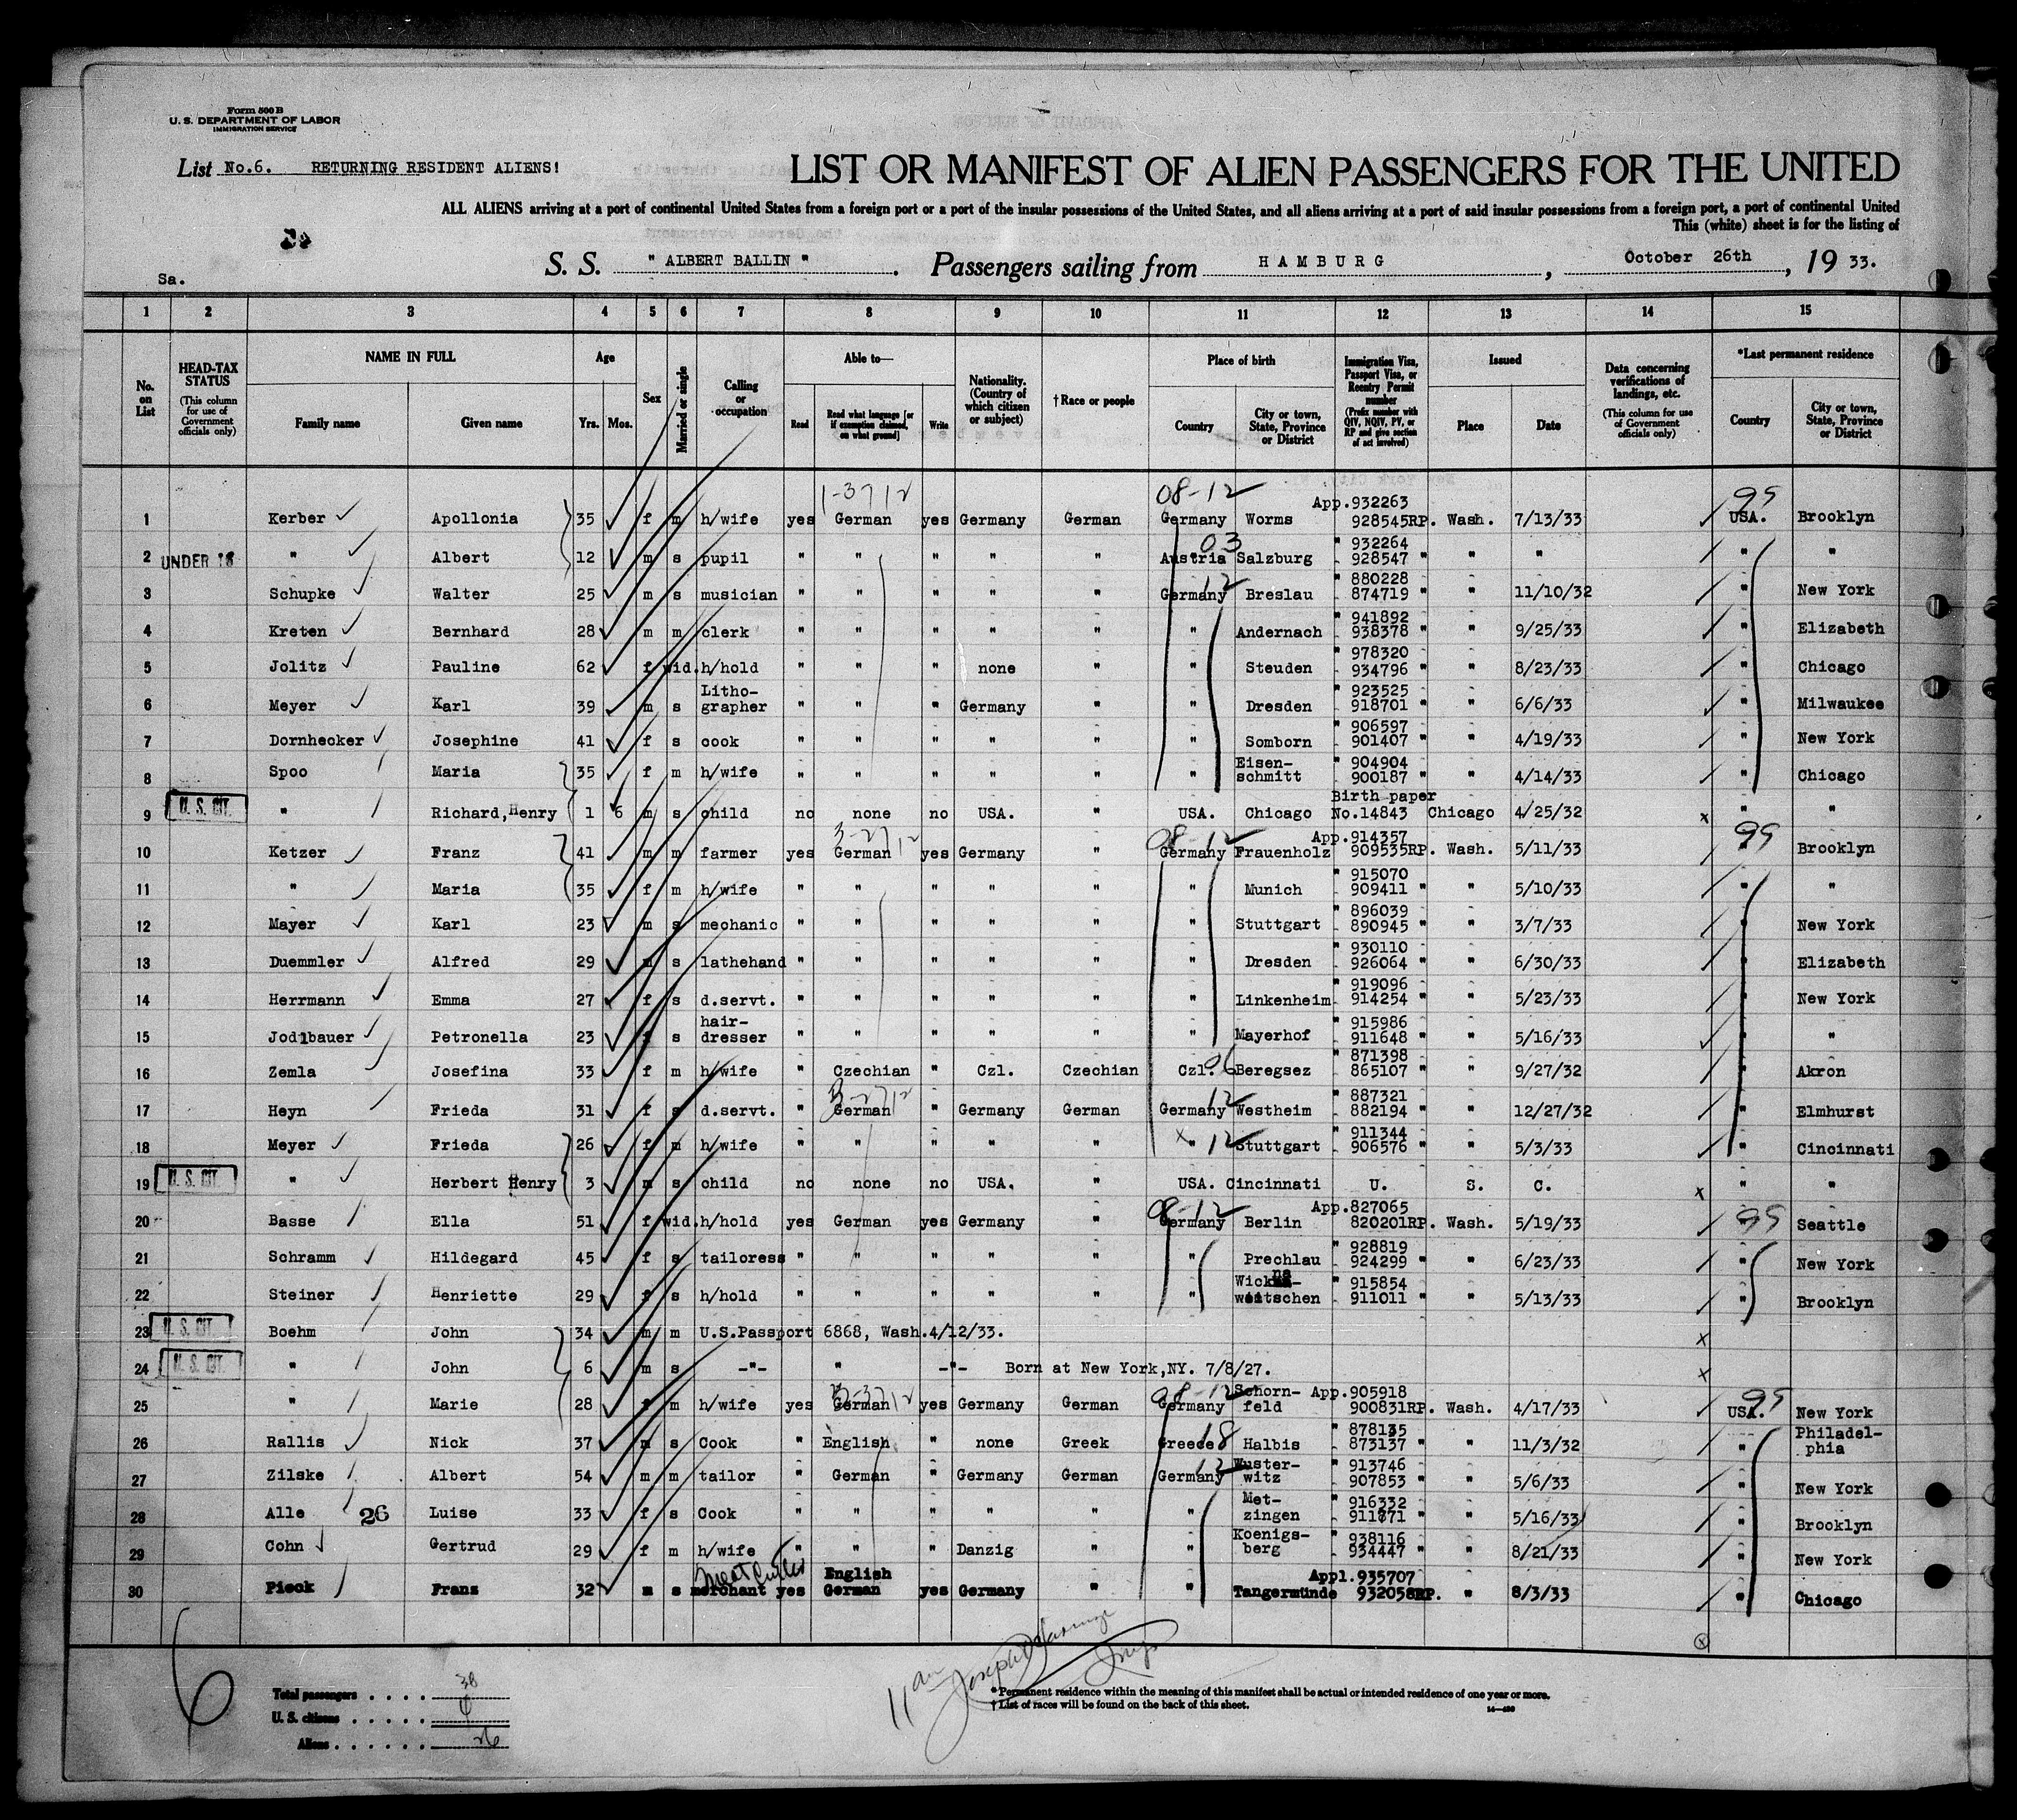 Form 500 B
U. S. DEPARTMENT OF LABOR
IMMIGRATION SERVICE
List No.6. RETURNING RESIDENT ALIENS!
LIST OR MANIFEST OF ALIEN PASSENGERS FOR THE UNITED
ALL ALIENS arriving at a port of continental United States from a foreign port or a port of the insular possessions of the United States, and all aliens arriving at a port of said insular possessions from a foreign port, a port of continental United
This (white) sheet is for the listing of
Sa.
S. S. " ALBERT BALLIN " . Passengers sailing from HAMBURG , October 26th , 19 33.
1 2 3 4 5 6 7 8 9 10 11 12 13 14 15
No. on List
HEAD-TAX STATUS (This column for use of Government officials only)
NAME IN FULL
Family name Given name
Age
Yrs. Mos.
Sex
Married or single
Calling or occupation
Able to—
Read Read what language [or if exemption claimed, on what ground] Write
Nationality. (Country of which citizen or subject)
†Race or people
Place of birth
Country City or town, State, Province or District
Immigration Visa, Passport Visa, or Reentry Permit number (Prefix number with QIV, NQIV, PV, or RP and give section of act involved)
Issued
Place Date
Data concerning verifications of landings, etc. (This column for use of Government officials only)
*Last permanent residence
Country City or town, State, Province or District
1-3712 08-12 App.932263 99
1 Kerber Apollonia 35 f m h/wife yes German yes Germany German Germany Worms 928545RP. Wash. 7/13/33 USA. Brooklyn
03 " 932264
2 UNDER 16 " Albert 12 m s pupil " " " " " Austria Salzburg 928547 " " " " "
12 " 880228
3 Schupke Walter 25 m s musician " " " " " Germany Breslau 874719 " " 11/10/32 " New York
" 941892
4 Kreten Bernhard 28 m m clerk " " " " " " Andernach 938378 " " 9/25/33 " Elizabeth
" 978320
5 Jolitz Pauline 62 f wid. h/hold " " " none " " Steuden 934796 " " 8/23/33 " Chicago
Litho- " 923525
6 Meyer Karl 39 m s grapher " " " Germany " " Dresden 918701 " " 6/6/33 " Milwaukee
" 906597
7 Dornhecker Josephine 41 f s cook " " " " " " Somborn 901407 " " 4/19/33 " New York
Eisen- " 904904
8 Spoo Maria 35 f m h/wife " " " " " " schmitt 900187 " " 4/14/33 " Chicago
Birth paper
9 U. S. CIT. " Richard,Henry 1 6 m s child no none no USA. " USA. Chicago No.14843 Chicago 4/25/32 x " "
3-2712 08-12 App.914357 99
10 Ketzer Franz 41 m m farmer yes German yes Germany " Germany Frauenholz 909535RP. Wash. 5/11/33 " Brooklyn
" 915070
11 " Maria 35 f m h/wife " " " " " " Munich 909411 " " 5/10/33 " "
" 896039
12 Mayer Karl 23 m s mechanic " " " " " " Stuttgart 890945 " " 3/7/33 " New York
" 930110
13 Duemmler Alfred 29 m s lathehand " " " " " " Dresden 926064 " " 6/30/33 " Elizabeth
" 919096
14 Herrmann Emma 27 f s d.servt. " " " " " " Linkenheim 914254 " " 5/23/33 " New York
hair- " 915986
15 Jodlbauer Petronella 23 f s dresser " " " " " " Mayerhof 911648 " " 5/16/33 " "
06 " 871398
16 Zemla Josefina 33 f m h/wife " Czechian " Czl. Czechian Czl. Beregsez 865107 " " 9/27/32 " Akron
3-2712 12 " 887321
17 Heyn Frieda 31 f s d.servt. " German " Germany German Germany Westheim 882194 " " 12/27/32 " Elmhurst
x 12 " 911344
18 Meyer Frieda 26 f m h/wife " " " " " " Stuttgart 906576 " " 5/3/33 " Cincinnati
19 U. S. CIT. " Herbert Henry 3 m s child no none no USA. " USA. Cincinnati U. S. C. x " "
08-12 App.827065 99
20 Basse Ella 51 f wid. h/hold yes German yes Germany " Germany Berlin 820201RP. Wash. 5/19/33 " Seattle
" 928819
21 Schramm Hildegard 45 f s tailoress " " " " " " Prechlau 924299 " " 6/23/33 " New York
" 915854
22 Steiner Henriette 29 f s h/hold " " " " " " 911011 " " 5/13/33 " Brooklyn
23 U. S. CIT. Boehm John 34 m m U.S.Passport 6868, Wash.4/12/33. x
24 U. S. CIT. " John 6 m s -"- " -"- Born at New York,NY. 7/8/27. x
3-3712 08-12 Schorn- App.905918 99
25 " Marie 28 f m h/wife yes German yes Germany German Germany feld 900831RP. Wash. 4/17/33 USA. New York
18 " 878135 Philadel-
26 Rallis Nick 37 m s Cook " English " none Greek Greece Halbis 873137 " " 11/3/32 " phia
12 Wuster- " 913746
27 Zilske Albert 54 m m tailor " German " Germany German Germany witz 907853 " " 5/6/33 " New York
Met- " 916332
28 Alle 26 Luise 33 f s Cook " " " " " " zingen 911871 " " 5/16/33 " Brooklyn
Koenigs- " 938116
29 Cohn Gertrud 29 f m h/wife " " " Danzig " " berg 934447 " " 8/21/33 " New York
meat cutter English Appl.935707
30 Pieck Franz 32 m s merchant yes German yes Germany " " Tangermünde 932058RP. " 8/3/33 " Chicago
6
Total passengers . . . . 30
U. S. citizens . . . . . 4
Aliens . . . . . . 26
11 am Joseph
Insp
*Permanent residence within the meaning of this manifest shall be actual or intended residence of one year or more.
†List of races will be found on the back of this sheet.
14—430